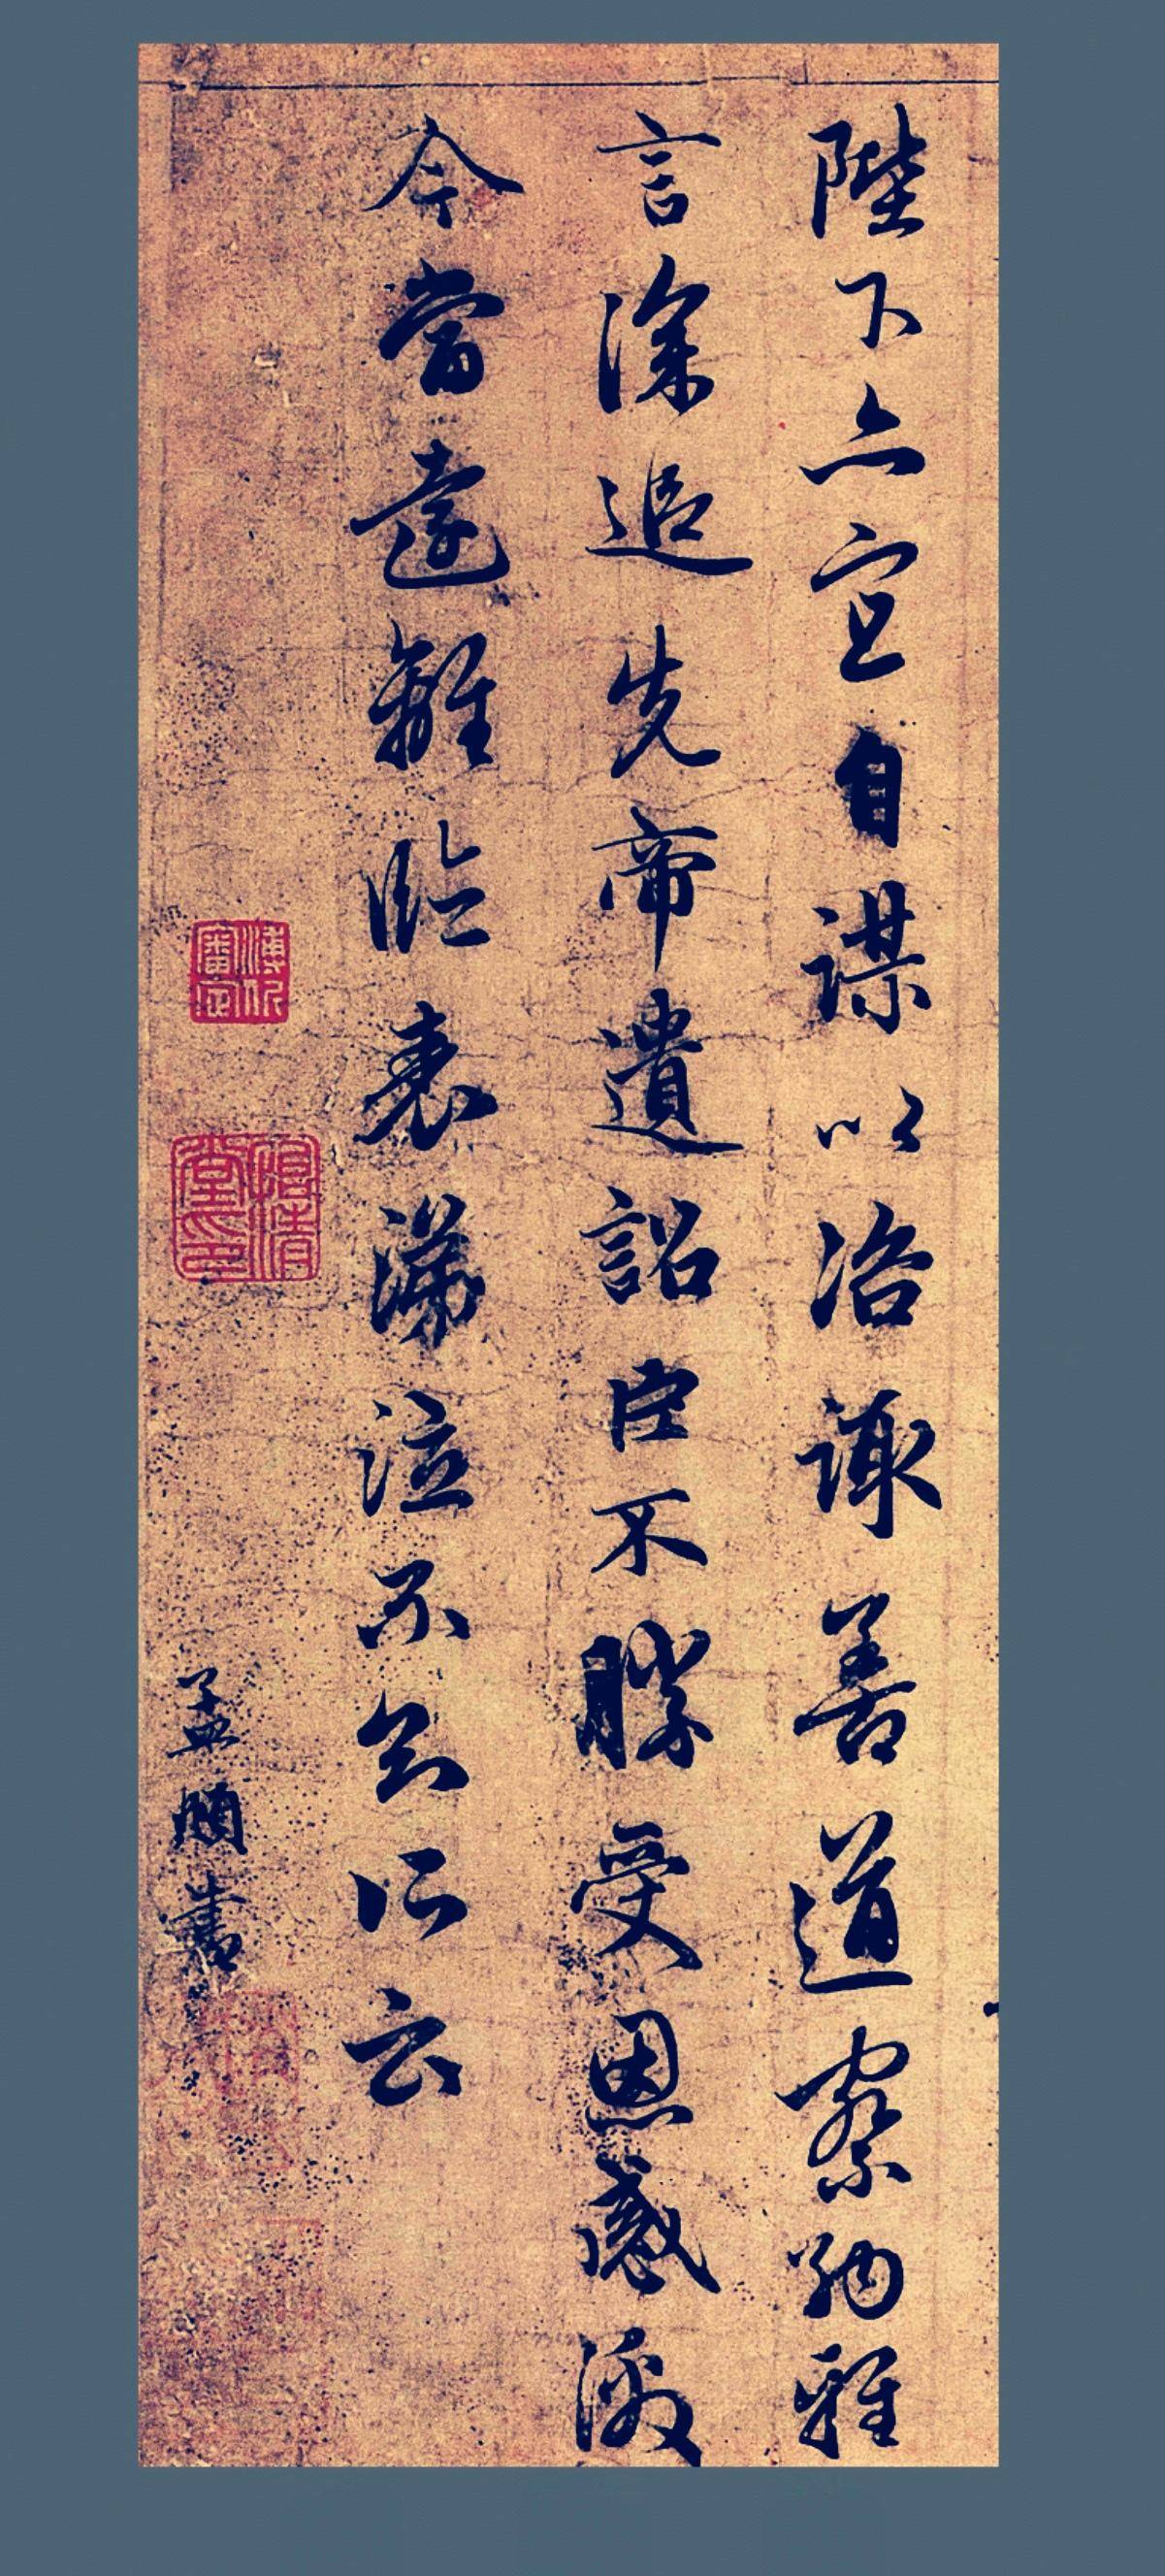 陛下亦宜自謀以治諏善道察納雅
言深追先帝遺詔臣不勝受恩感激
今當遠離臨表涕泣不知所云
孟頫書